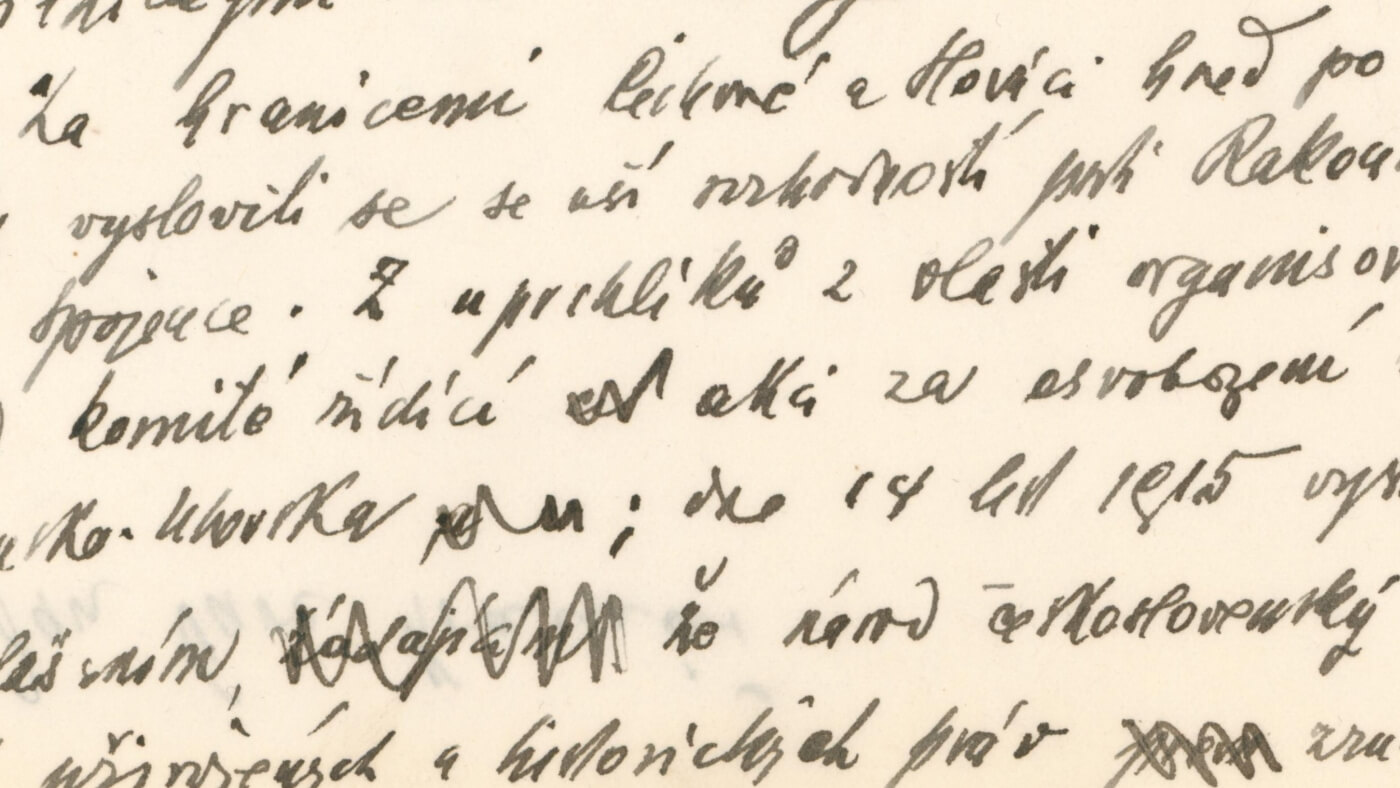 Za hranicemi Čechové a Slováci hned po
vyslovili se se vší rozhodností proti Rakou
spojence. Z uprchlíků z vlasti organisov
komité řídící akci za osvobození
usko-Uhorska ; dne 14 list 1915 vys
lášením, žádajícím že národ československý
přirozených a historických práv zru